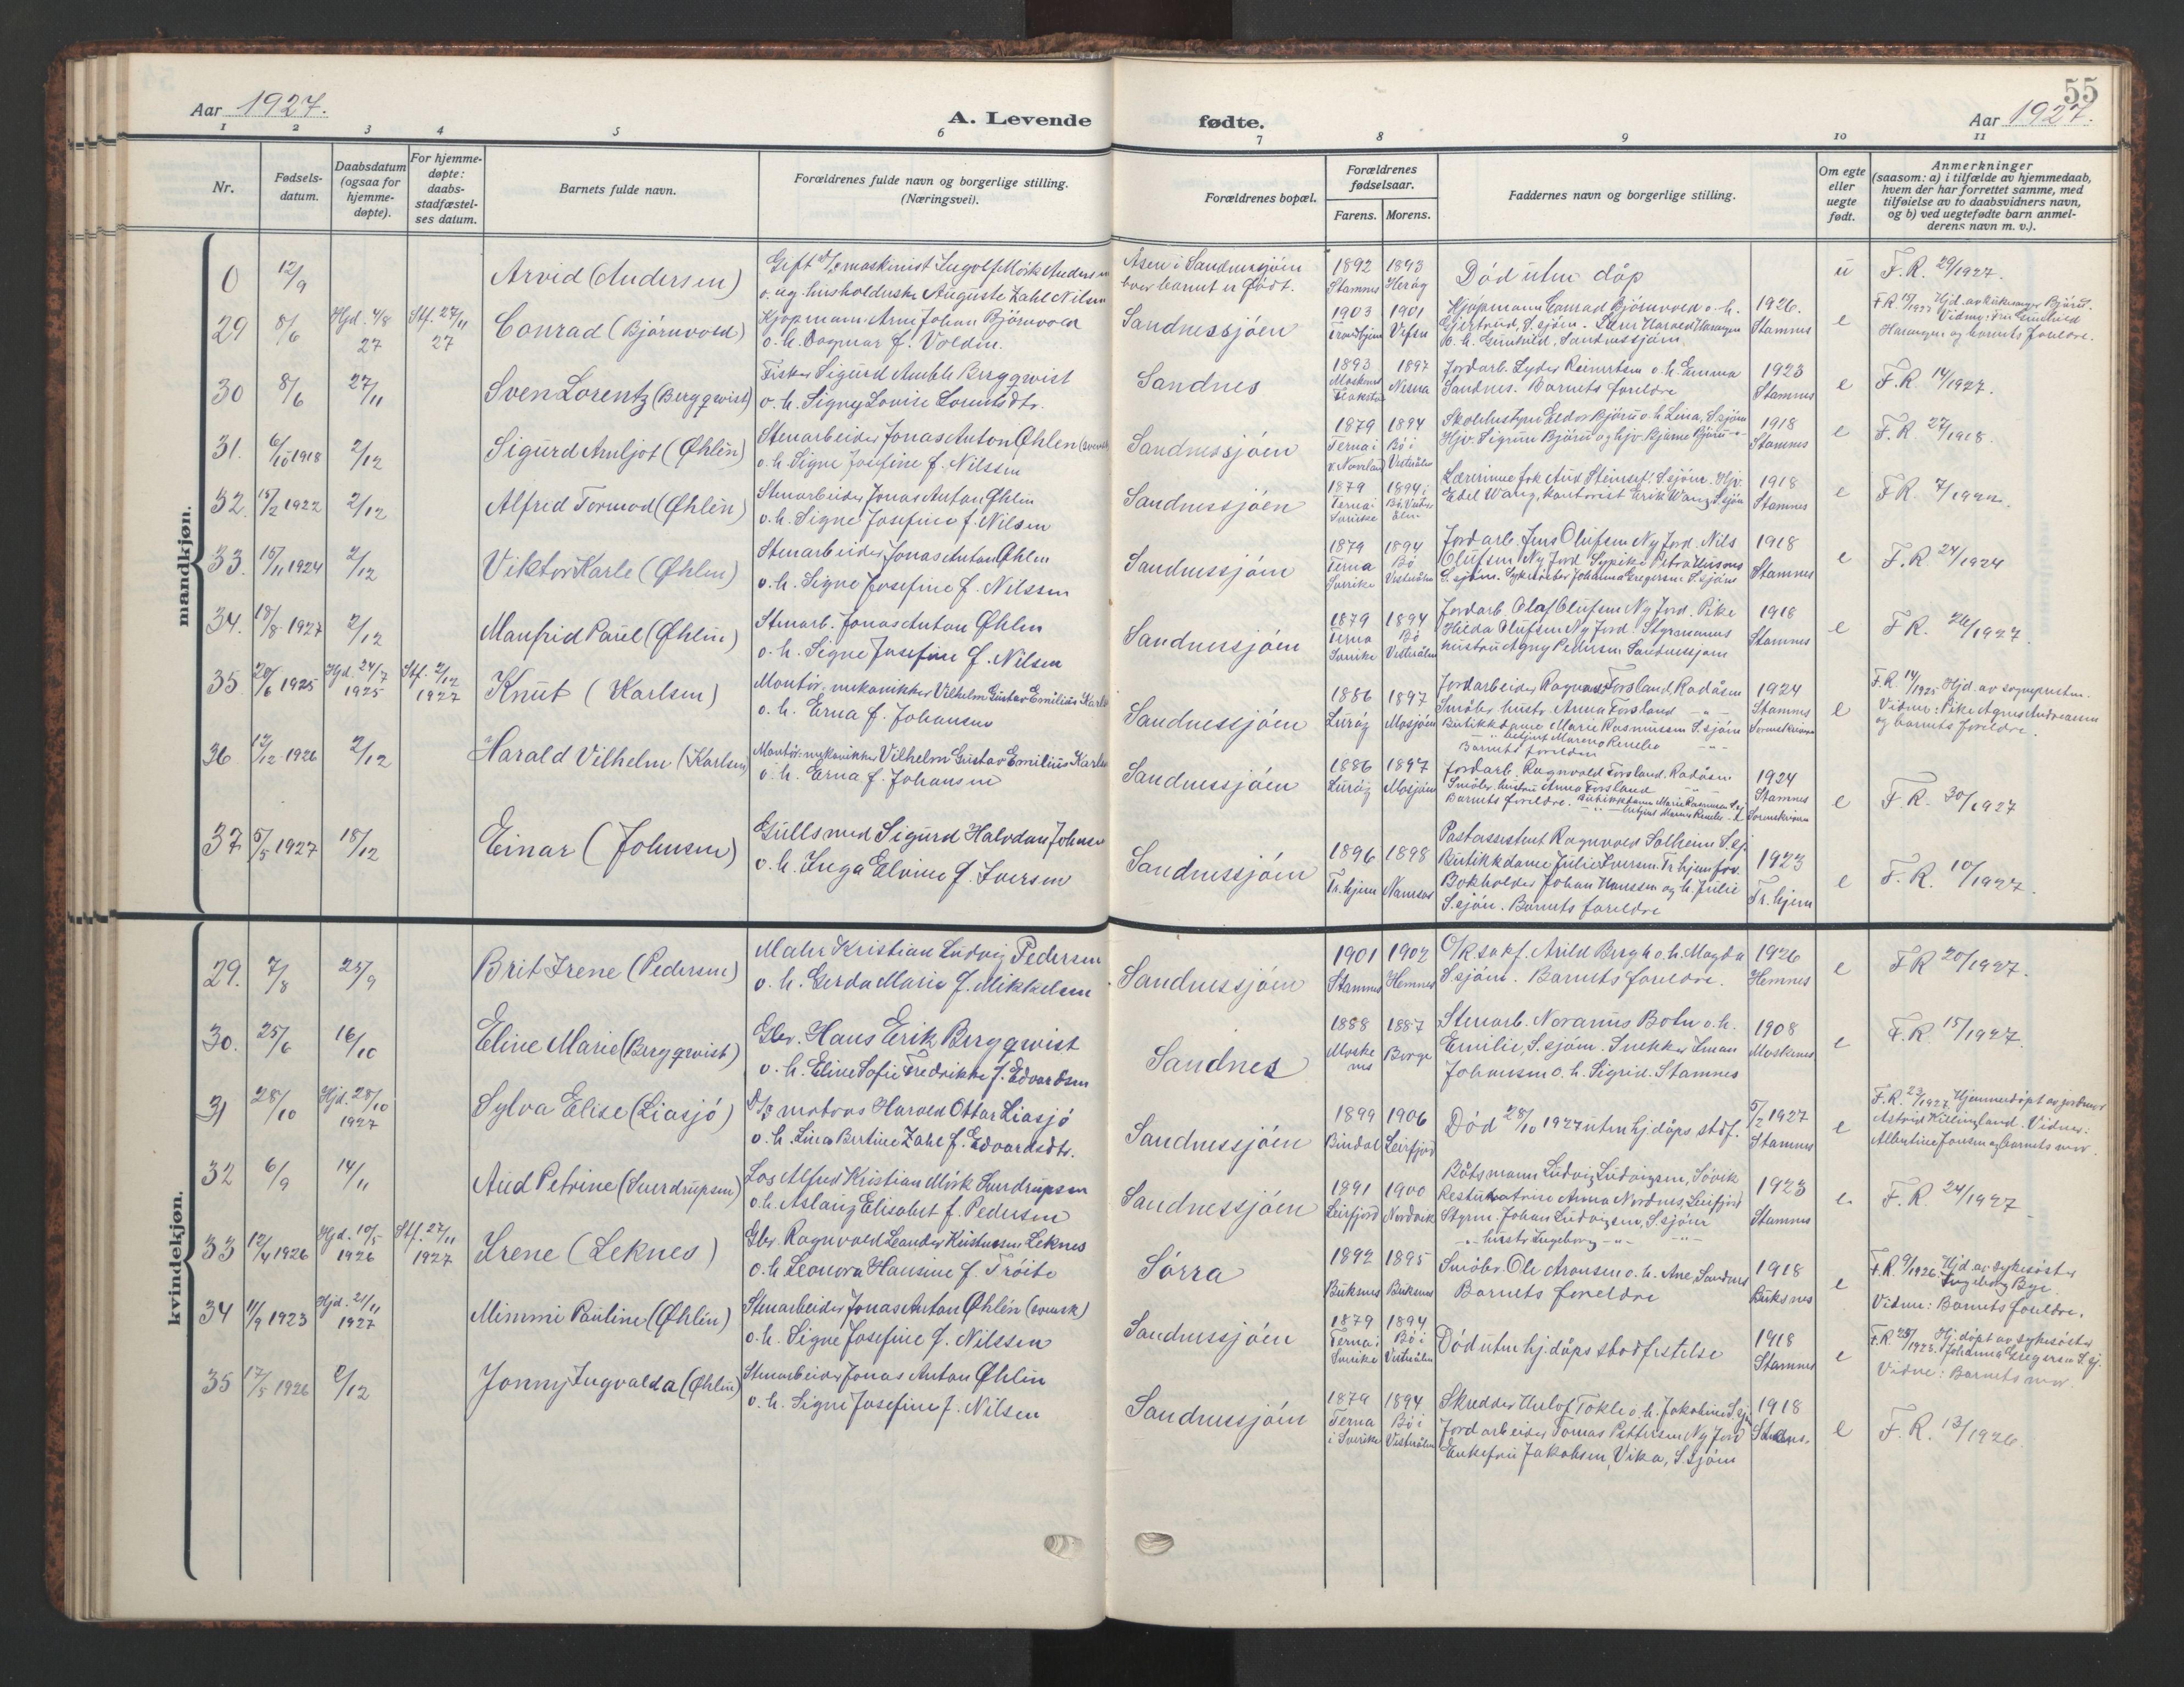 55
Aar 1927.
A. Levende fødte.
Aar 1927.
1 2 3 4 5 6 7 8 9 10 11
Nr.
Fødsels-
datum.
Daabsdatum
(ogsaa for
hjemme-
døpte).
For hjemme-
døpte:
daabs-
stadfæstel-
ses datum.
Barnets fulde navn.
Forældrenes fulde navn og borgerlige stilling.
(Næringsvei).
Forældrenes bopæl.
Forældrenes
fødselsaar.
Farens. Morens.
Faddernes navn og borgerlige stilling.
Om egte
eller
uegte
født.
Anmerkninger
(saasom: a) i tilfælde av hjemmedaab,
hvem der har forrettet samme, med
tilføielse av to daabsvidners navn,
og b) ved uegtefødte barn anmel-
derens navn m. v.).
mandkjøn.
0 12/9 Arvid (Andersen)
Gift D/S maskinist Ingolf Mörk Andersen
o. ug. husholderske Auguste Zahl Nilsen
Åsen i Sandnessjöen
hvor barnet er född.
1892 Stamnes 1893 Heröy
Död uten dåp
u F.R. 29/1927.
29 8/6 Hjd. 4/8 27 Stf. 27/11 27 Conrad (Björnvold)
Kjöpmann Arne Johan Björnvold
o. h. Dagmar f. Voldin.
Sandnessjöen
1903 Trondhjem 1901 Vefsn
Kjöpmann Conrad Björnvold o. h.
Gjertrud, S.sjöen. Harald
o. h. Gunhild, Sandnessjöen.
1926. Stamnes
e F.R. 15/1927 Hjd. av
og barnets foreldre.
30 8/6 27/11 Sven Lorentz (Bergqvist)
Fisker Sigurd Amble Bergqvist
o. h. Signy Lovise Lorentsdtr.
Sandnes
1893 Moskenes Flakstad 1897 Nesna
Jordarb. Lyder Reinertsen o. h. Emma
Sandnes. Barnets foreldre
1923 Stamnes
e F.R 14/1927.
31. 6/10 1918 2/12 Sigurd Arnljot (Øhlén)
Stenarbeider Jonas Anton Øhlén (svensk)
o. h. Signe Josefine f. Nilssen
Sandnessjöen
1879 Terna i v. Norrland 1894 Bö i Vesterålen
Skolebestyrer Eldor Björu o. h. Lina, S.sjöen
Hjv. Sigrun Björu og hjv. Bjarne Björu
1918 Stamnes
e F.R 27/1918.
32. 15/2 1922 2/12 Alfred Tormod (Øhlén)
Stenarbeider Jonas Anton Øhlin
o. h. Signe Josefine f. Nilsen
Sandnessjöen
1879 Terna i Sverike 1894 Bö i Vesterålen
Lærerinne frk Aud Steinset. S.sjöen. Hjv.
Edel Wang, kontorist Erik Wang S.sjöen
1918 Stamnes
e F.R 7/1922.
33. 15/11 1924 2/12 Viktor Karle (Øhlin)
Stenarbeider Jonas Anton Øhlen
o. h. Signe Josefine f. Nilssen
Sandnessjöen
1879 Terna Sverike 1894 Bö Vesterålen
Jordarb. Jens Olufsen Ny Jord. Nils
Olufsen Ny Jord. Sypike Petra
S.sjöen. Sykesöster Johanna Gregersen S.sjöen
1918 Stamnes
e F.R. 24/1924
34. 18/8 1927 2/12 Manfrid Paul (Øhlin)
Stenarb. Jonas Anton Øhlen
o. h. Signe Josefine f. Nilsen
Sandnessjöen
1879 Terna Sverike 1894 Bö Vesterålen
Jordarb. Olaf Olufsen Ny Jord. Pike
Hilda Olufsen Ny Jord. Styrmanns
hustru Agny Pedersen Sandnessjöen
1918 Stamnes
e F.R. 26/1927.
35 20/6 1925 Hjd. 24/7 1925 Stf. 2/12 1927 Knut (Karlsen)
Montör, mekanikker Vilhelm Gustav Emilius Karlsen
o. h. Erna f. Johansen
Sandnessjöen
1886 Luröy 1897 Mosjöen
Jordarbeider Ragnvald Forsland, Radåsen
Småbr. hustr. Anna Forsland
Butikkdame Marie Rasmussen S.sjöen
Barnets foreldre
1924 Stamnes Sorenskriveren
e F.R. 14/1925. Hjd. av sogneprsten.
Vidner: Pike Agnes Andreassen
og barnets foreldre.
36 12/12 1926 2/12 Harald Vilhelm (Karlsen)
Montör, mekanikker Vilhelm Gustav Emilius Karlsen
o. h. Erna f. Johansen
Sandnessjöen
1886 Luröy 1897 Mosjöen
Jordarb. Ragnvald Forsland. Radåsen
Småbr. hustru Anna Forsland
Barnets foreldre. Butikkdame Marie Rasmussen S.sj.
1924 Stamnes Sorenskriveren
e F.R. 30/1927
37 5/5 1927 18/12 Einar (Johnsen)
Gullsmed Sigurd Halvdan Johnsen
o. h. Inga Elvine f. Iversen
Sandnessjöen
1896 Tr.hjem 1898 Namsos
Postassistent Ragnvald Solheim S.sj.
Butikkdame Julie Iversen. Tr.hjem fov.
Bokholder Johan Hanssen og h. Julie
S.sjöen. Barnets foreldre
1923 Tr.hjem
e F.R. 10/1927.
kvindekjøn.
29. 7/8 25/9 Brit Irene (Pedersen)
Maler Kristian Ludvig Pedersen
o. h. Gerda Marie f. Mikkelsen
Sandnessjöen
1901 Stamnes 1902 Hemnes
O/R.sakf. Arild Bergh o. h. Magda
S.sjöen. Barnets foreldre.
1926 Hemnes
e F.R 20/1927.
30. 25/6 16/10 Eline Marie (Bergqvist)
Gbr. Hans Erik Bergqvist
o. h. Eline Sofie Fredrikke f. Edvardsen
Sandnes
1888 Moskenes 1887 Borge
Stenarb. Novanus Botn o. h.
Emilie, S.sjöen. Snekker Iman
Johansen o. h. Sigrid. Stamnes
1908 Moskenes
e F.R 15/1927.
31 28/10 Hjd. 28/10 1927 Sylva Elise (Liasjö)
D/S matros Harald Ottar Liasjö
o. h. Lina Bertine Zahl f. Edvardsdtr.
Sandnessjöen
1899 Bindal 1906 Leirfjord
Död 28/10 1927 uten hj.dåps stdf.
5/2 1927 Stamnes
e F.R. 23/1927. Hjemmedöpt av jordmor
Astrid Killingland. Vidner:
Albertine Jensen og barnets mor.
32 6/9 14/11 Aud Petrine (Sverdrupsen)
Los Alfred Kristian Mörk Sverdrupsen
o. h. Aslaug Elisabet f. Pedersen
Sandnessjöen
1891 Leirfjord 1900 Nordvik
Båtsmann Ludvig Ludvigsen, Sövik
Restuatrise Anna Nordnes, Leirfjord
Styrm. Johan Ludvigsen, S.sjöen
hustr. Ingeborg
1923 Stamnes
e. F.R. 24/1927
33 12/4 1926 Hjd. 10/5 1926 Stf. 27/11 1927 Irene (Leknes)
Gbr. Ragnvald Leander Kristensen Leknes
o. h. Leonora Hansine f. Tröite
Sörra
1892 Buksnes 1895 Buksnes
Småbr. Ole Aronsen o. h. Ane, Sandnes
Barnets foreldre
1918 Buksnes
e F.R. 9/1926. Hjd. av sykesöster
Ingeborg Bye.
Vidne: Barnets foreldre.
34 11/9 1923 Hjd. 21/11 1927 Mimmi Pauline (Øhlén)
Stenarbeider Jonas Anton Øhlén (svensk)
o. h. Signe Josefine f. Nilssen
Sandnessjöen
1879 Terna i Sverike 1894 Bö i Vesterålen
Död uten hj.dåps stadfestelse
1918 Stamnes
e F.R. 25/1923. Hj.döpt av sykesöster
Johanna Gregersen S.sj.
Vidne: Barnets mor.
35 17/5 1926 2/12 Jonny Ingvalda (Øhlin)
Stenarbeider Jonas Anton Øhlin
o. h. Signe Josefine f. Nilsen
Sandnessjöen
1879 Terna i Sverike 1894 Bö i Vesterålen
Skredder Tokle o. h. Jakobine S.sj.
Jordarbeider Tomas Pettersen Ny Jord
Enkefru Jakobsen, Vika, S.sjöen
1918 Stamnes.
e F.R. 13/1926.